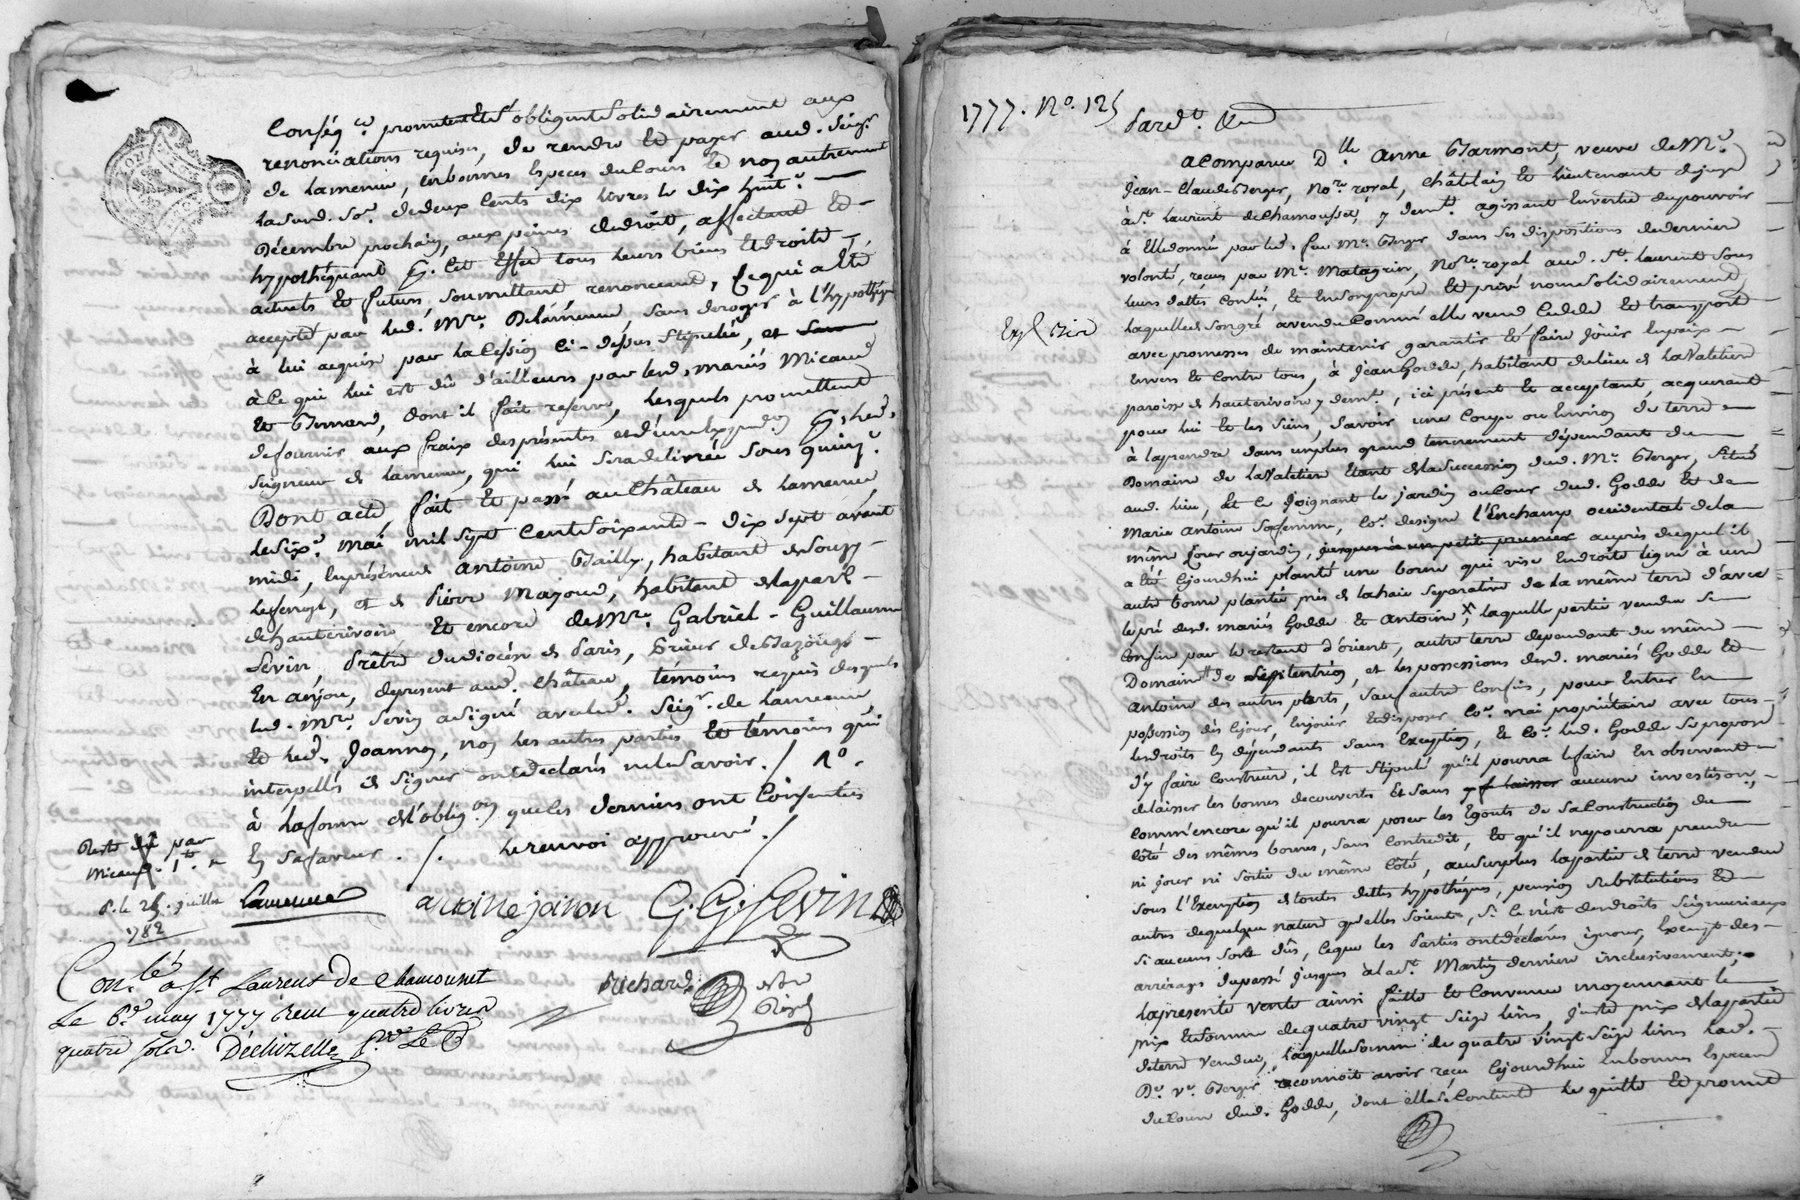 Conséq.ce promettent et s'obligent solidairement aux
renonciations requises, de rendre et payer aud. seig.r
de Lamenue, en bonnes especes du cours et non autrement
la susd. so.e de deux cents dix livres le dix huit.e
Décembre prochain, aux peines de droit, affectant et
hypothéquant p. cet effet tous leurs biens et droits
actuels et futurs, soumettant renonceant, ce qui a été
accepté par led. Mre. Delamenue sans deroger à l'hypothéque
à lui acquise par la Cession ci-dessus stipulée, et
à ce qui lui est dû d'ailleurs par lesd. mariés Micaud
et dont il fait reserve, lesquels promettent
de fournir aux fraix des présentes et d'une exped.on p. led.
seigneur de Lamenue, qui lui sera delivrée sous quinz.e
Dont acte fait et passé au Château de Lamenue
le six.e mai mil sept cent soixante-dix sept avant
midi, en présence de antoine Bailly, habitant de Souzy
et de Pierre Majoud, habitant de la par.e
de hauterivoire et encore de Mre. Gabriel-Guillaume
Sévin, Prêtre du diocèse de Paris, Prieur de Bazouges
en anjou, de present aud. Château, témoins requis desquels
led. Mre. Sevin a signé avec led. Seig.r de Lamenue
et led. Joannon, non les autres parties et témoins qui
interpellés de signer ont déclarés ne le savoir ./ 1°.
à la forme de l'oblig.on que les derniers ont consentie
en sa faveur ./. le renvoi approuvé ./
Reste dû par
Micaud
P. le 25. juillet
1782
Lamenue antoine joanon G. G. Sevin
Con.lé à St Laurent de Chamousset
Le 6e may 1777 reçu quatre livres
quatre sols. Dechizelle
Richard
1777. No. 125
Pard.t
a Comparu D.lle Anne Barmont, veuve de M.e
Jean-Claude Berger, No.re royal, châtelain et lieutenant de juge
à St Laurent de Chamousset, y dem.t agissant en vertu du pouvoir
à elle donné par led. feu Me. Berger dans ses dispositions de derniere
volonté, reçues par Me. Matagrin, No.re royal aud. St. Laurent sous
leurs dattes, et en son propre et privé nom solidairement
laquelle de son gré a vendu comme elle vend cedde et transporte
avec promesses de maintenir garantir et faire jouir en paix
Exp.
envers et contre tous, à Jean Godde, habitant du lieu de La Valetier
paroisse de hauterivoire y dem.t, ici présent et acceptant, acquerant
pour lui et les siens, savoir une coupe ou environ de terre
à la prendre dans un plus grand tenement dépendant du
Domaine de la Valetier étant de la succession dud. Me. Berger, situé
aud. lieu, et le joignant le jardin ou cour dud. Godde et de
Marie antoine sa femme, co.e designe l'Enchamp occidental de la
même cour ou jardin, jusques à un petit prunier auprès duquel il
a été cejourdhui planté une borne qui vise en droite ligne à une
autre borne plantée près de la haie separative de la même terre d'avec
le pré desd. mariés Godde et Antoine; laquelle partie vendue se
confine par le restant d'orient, autre terre dependant du même
Domaine de septentrion, et les possessions desd. mariés Godde et
Antoine des autres parts, sauf autre confins, pour entrer en
possession dès ce jour, en jouir et disposer co.e vrai propriétaire avec tous
les droits en dépendants sans exception, et co.e led. Godde se propose
d'y faire construire, il est stipulé qu'il pourra le faire en observant
de laisser les bornes decouvertes et sans y laisser aucune investison,
comm'encore qu'il pourra poser les Egouts de sa construction du
côté des mêmes bornes, sans contredit, et qu'il ne pourra prendre
ni jour ni sortie du même côté, au surplus la partie de terre vendue
sous l'Exemption de toutes dettes hypothéques, pension substitutions et
autres de quelque nature qu'elles soient, si ce n'est des droits seigneuriaux
si aucuns sont dûs, ce que les Parties ont déclarés ignorer, Exempt des
arrérages du passé jusques à la St. Martin derniere inclusivement;
la présente vente ainsi faitte et convenue moyennant le
prix et somme de quatre vingt seize livres, juste prix de la partie
de terre vendue, laquelle somme de quatre vingt seize livres lad.
D.e v.e Berger reconnoit avoir reçu cejourdhui en bonnes Especes
du cours dud. Godde, dont elle se contente le quitte et promet